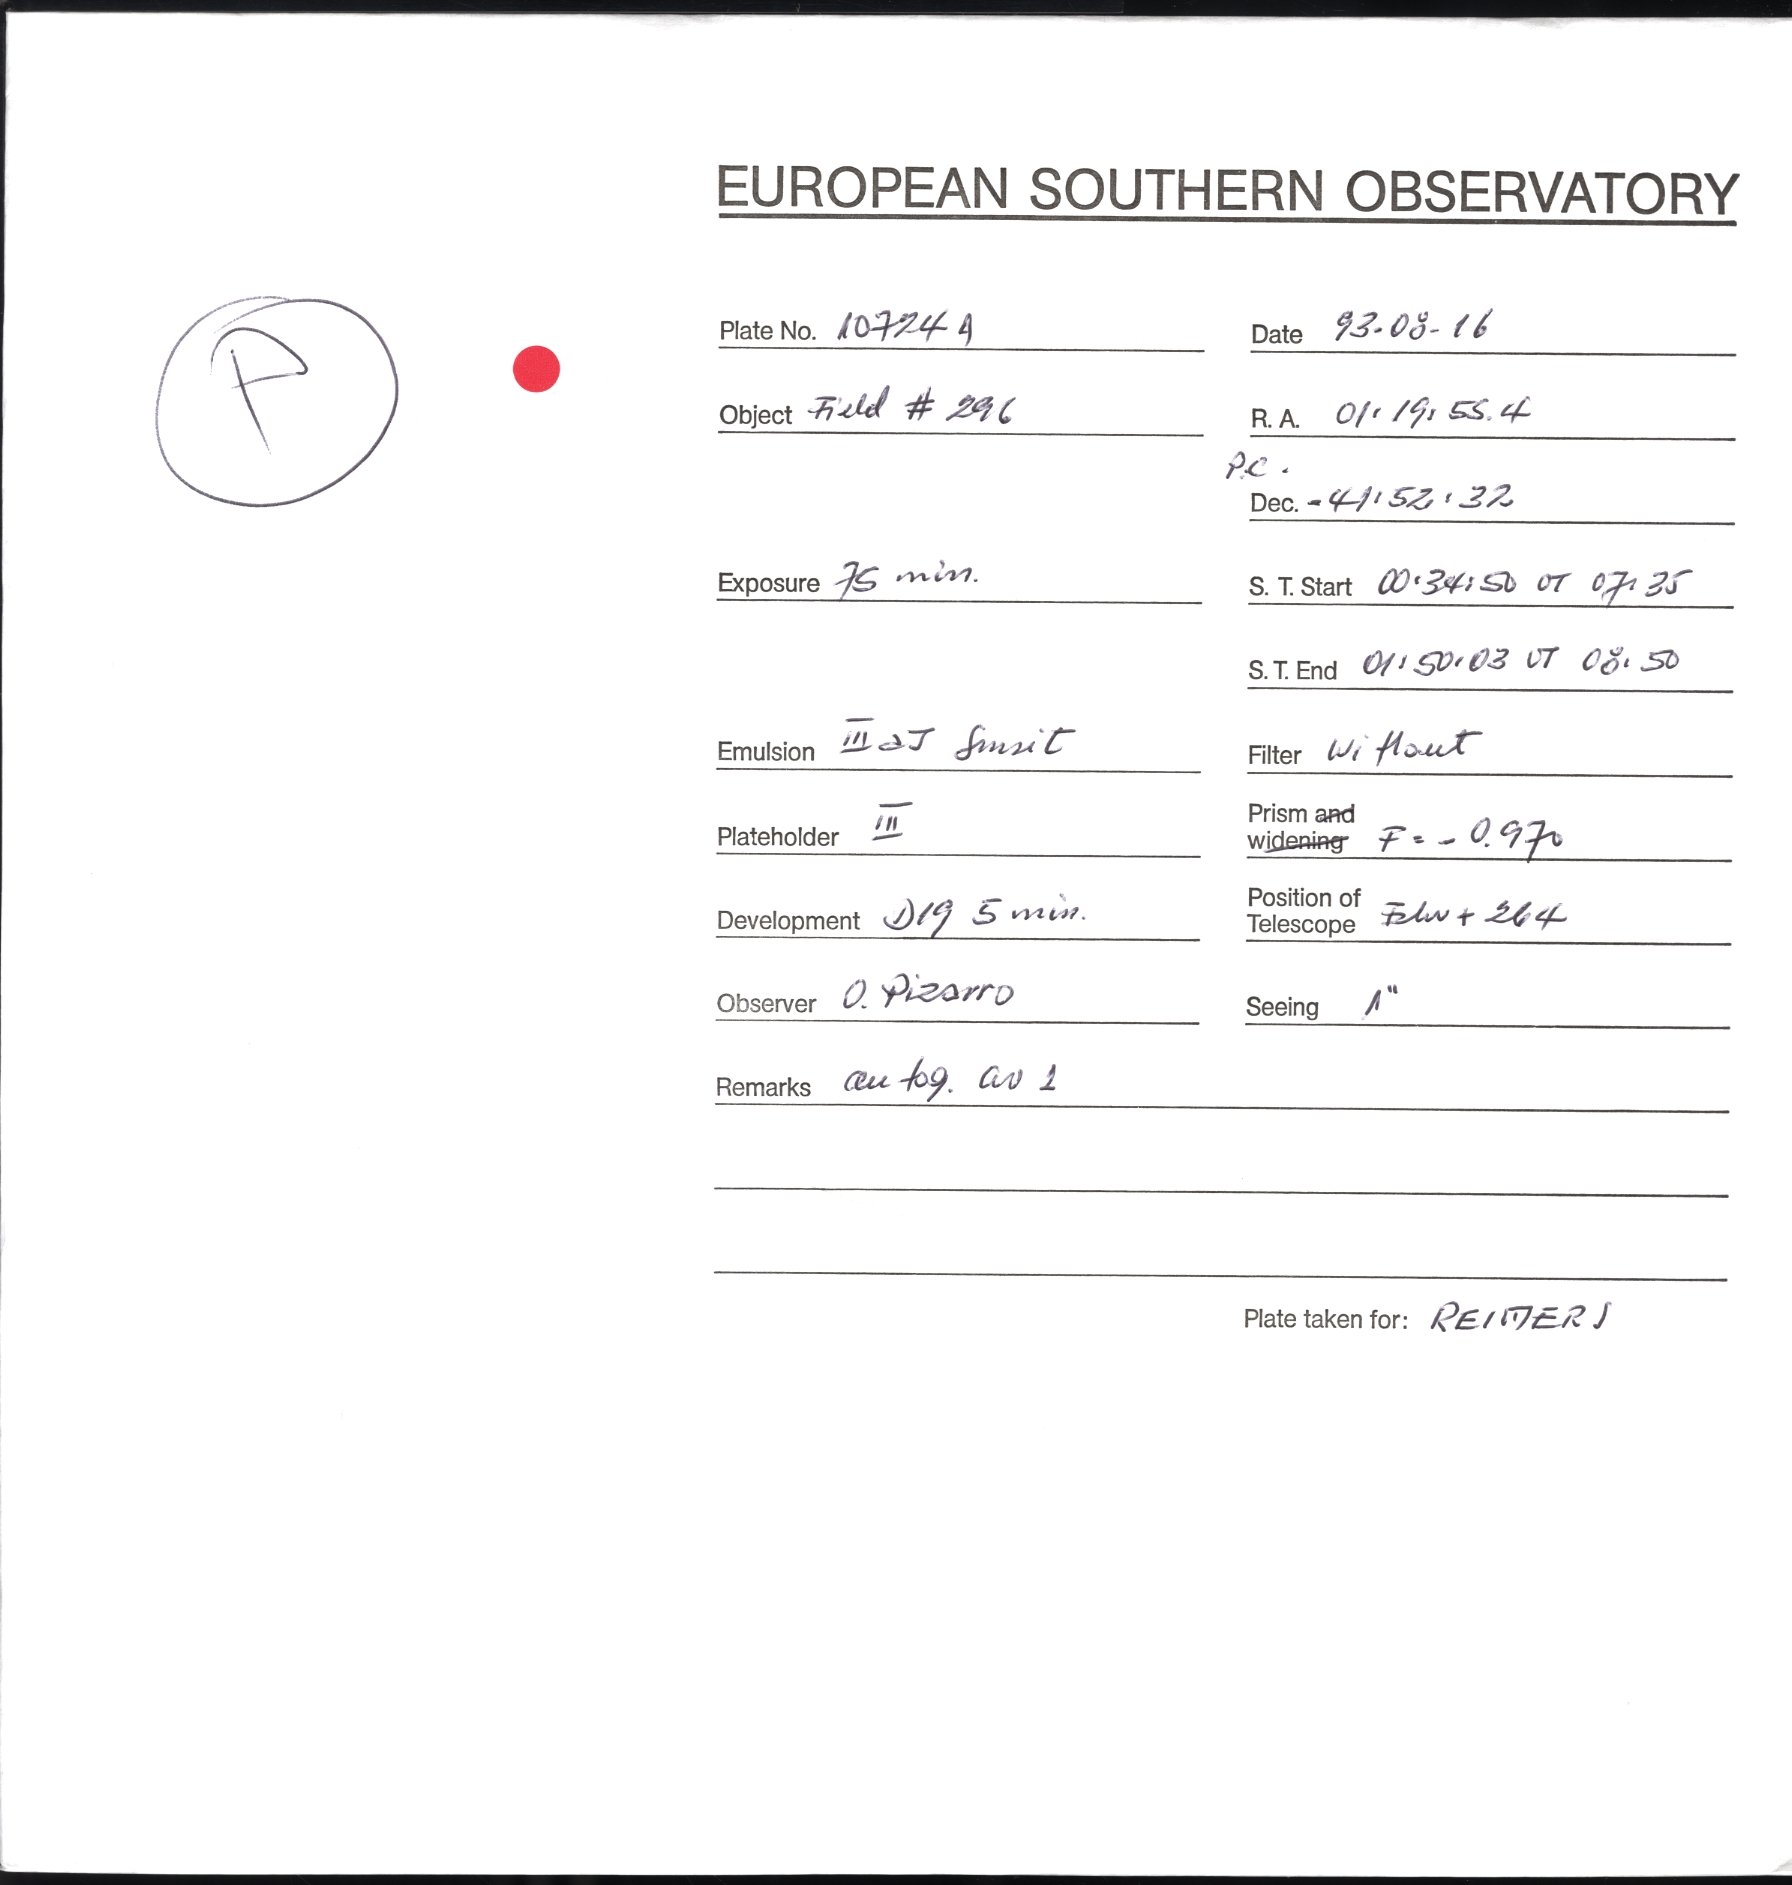 EUROPEAN SOUTHERN OBSERVATORY
P
Plate No. 10724 A
Date 93-08-16
Object Field # 296
R. A. 01:19:55.4
P.C.
Dec. -41:52:32
Exposure 75 min.
S. T. Start 00:34:50 UT 07:35
S. T. End 01:50:03 UT 08:50
Emulsion III aJ
Filter Without
Plateholder III
Prism and
widening F = - 0.970
Development D19 5 min.
Position of
Telescope + 264
Observer O. Pizarro
Seeing 1"
Remarks autog. 1
Plate taken for: REIMERS